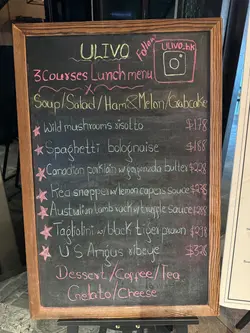 ULIVO
Follow
ULIVO.hk
3 Courses Lunch menu
Soup/Salad/Ham&Melon/Crabcake
Wild mushrooms risotto $178
Spaghetti bolognaise $168
Canadian porkloin w gorgonzola butter $228
Red snapper w lemon capers sauce $238
Australian lamb rack w truffle sauce $298
Tagliolini w/ black tiger prawn $238
US Angus ribeye $328
Dessert/Coffee/Tea
Gelato/Cheese